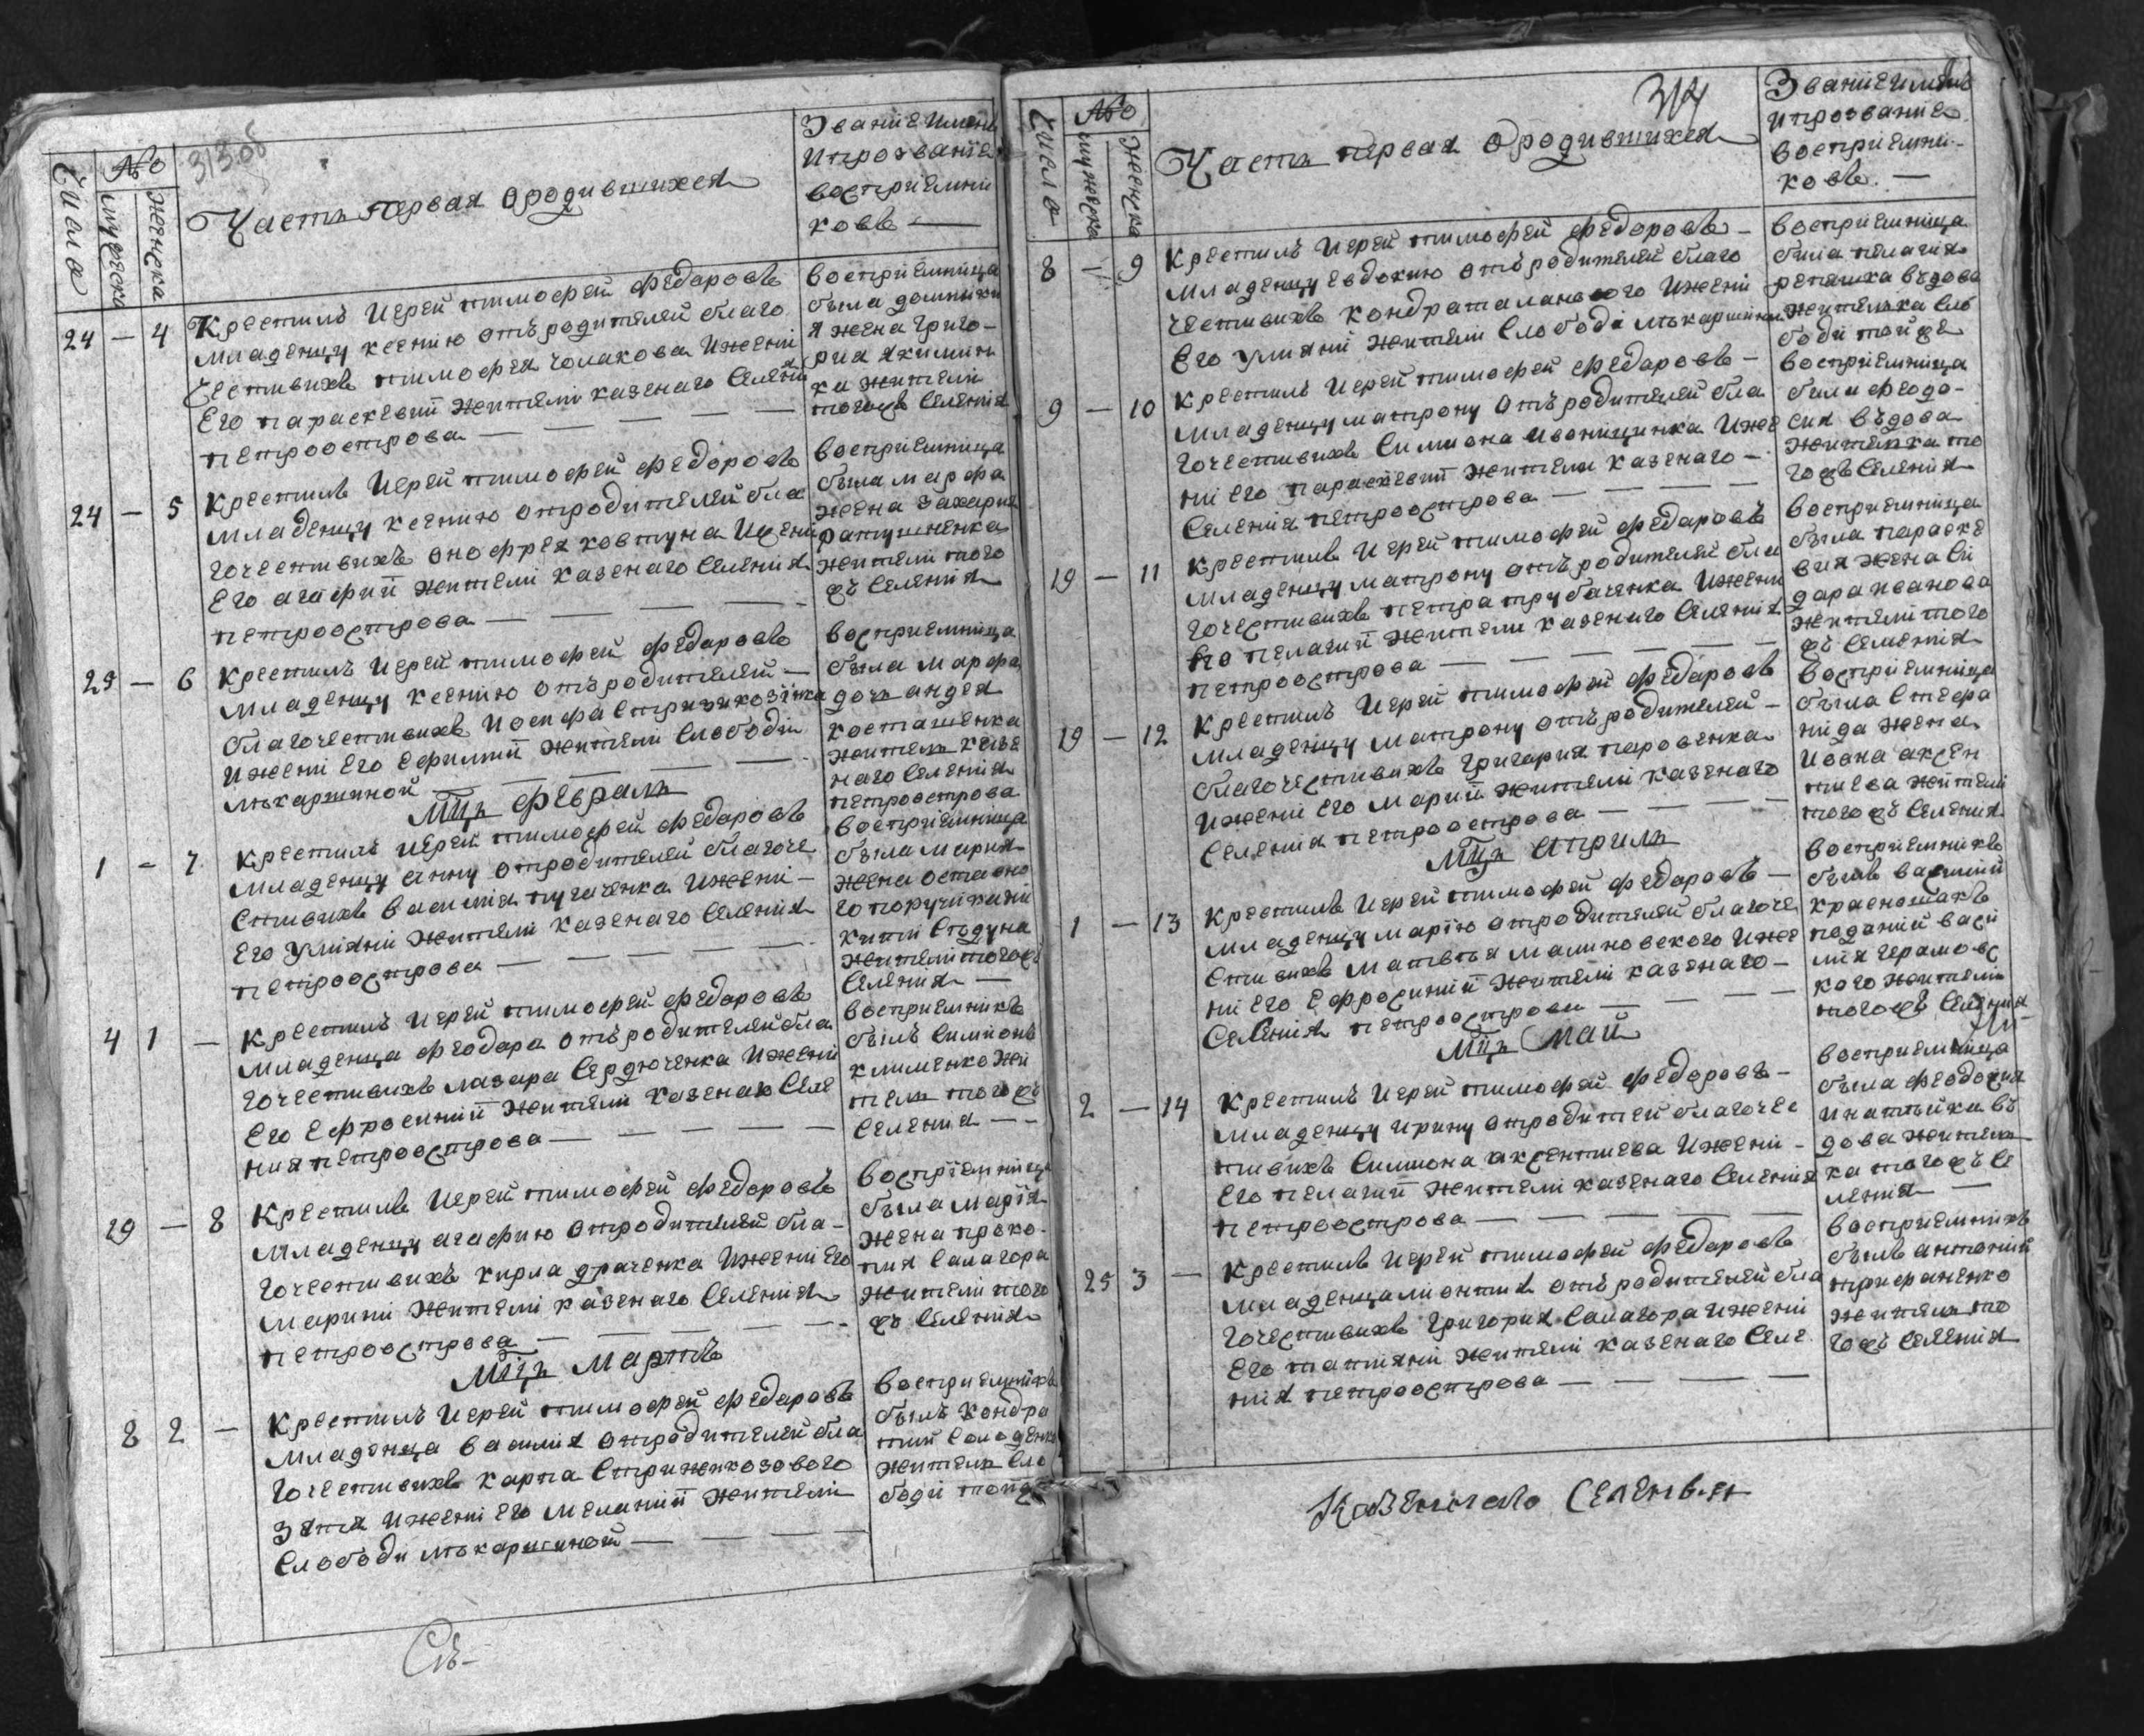 313об
Число
№
мужеска
женска
Часть перваяОродившихся
Званіе имянъ
ипрозваніе
восприемни
ковъ
24 — 4
Крестилъ Иерей тимофей федаровъ
младенцу ксению отъ родителей благо
честивихъ тимофея чолакова ижени
Его параскевии жители казенаго Селения
петроострова
восприемница
была домники
я жена Григо-
рия якимин
ка жители
тогожъ Селения
24 — 5
Крестилъ Иерей тимофей федоровъ
младенцу ксению отродителей бла
гочестивихъ онофрея ковтуна ижени
Его агафии жители казенаго Селения
петроострова
восприемница
была марфа
жена захария
ратушненка
жители того
жъ Селения
25 — 6
Крестилъ Иерей тимофей федаровъ
младенцу ксению отъ родителей —
благочестивихъ Иосифа Стрижикозинка
ижени Его Ефимии жители Слободи
мъкартиной
восприемница
была марфа
дочь андея
косташенка
жители казе
наго Селения
петроострова
Мцъ февраль
1 — 7
Крестилъ Иерей тимофей федаровъ
младенцу анну отродителей благоче
стивихъ василия пугаченка ижени —
Его Улияни жители казенаго Селения
петроострова
восприемница
была мария
жена оставно
го поручика ни
кити Стъдуна
жители тогожъ
Селения
4 1 —
Крестилъ Иерей тимофей федаровъ
младенца феодара отъ родителей бла
гочестивихъ лазара Сердюченка ижени
Его Ефросинии жители казенаго Селе
ния петроострова
восприемникъ
былъ Симионъ
клименко жи
тель тогожъ
Селения
29 — 8
Крестилъ Иерей тимофей федоровъ
младенцу агафию отродителей бла-
гочестивихъ кирила драченка ижени Его
марини жители казенаго Селения
петроострова
восприемница
была мария
жена проко-
пия Салагора
жители того
жъ Селения
Мцъ Мартъ
8 2 —
Крестилъ Иерей тимофей федаровъ
младенца василия отродителей бла
гочестивихъ карпа Стрижикозового
зятя ижени Его мелании жители
Слободи мъкартиной
восприемникъ
былъ кондра
тий Солоденко
житель Сло
боди тойжъ
Съ-
314
Число
№
мужеска
женска
Часть первая Ородившихся
Званіе имянъ
ипрозваніе
восприемни-
ковъ
8 — 9
Крестилъ Иерей тимофей федоровъ —
младенцу Евдокию отъ родителей благо
честивихъ кондрата ланового ижени
Его Улияни жители Слободи мъкартиной
восприемница
била пелагия
репяшка въдова
жителька Сло
боди тойже
9 — 10
Крестилъ Иерей тимофей федаровъ —
младенцу матрону отъ родителей бла
гочестивихъ Симиона ивонищинка иже
ни Его параскевии жители казенаго —
Селения петроострова
восприемница
била феодо-
сия въдова
жителька то
гожъ Селения
19 — 11
Крестилъ Иерей тимофей федаровъ
младенцу матрону отъ родителей бла
гочестивихъ петра трубаченка ижени
Его пелагии жители казенаго Селения
петроострова
восприемница
была параске
вия жена Си
дара иванова
жители того
жъ Селения
19 — 12
Крестилъ Иерей тимофей федаровъ
младенцу матрону отъ родителей —
благочестивихъ григария паровенка
ижени Его марии жители казенаго
Селения петроострова
восприемница
была Стефа
нида жена
ивана аксен
тиева жители
тогожъ Селения
Мцъ Априль
1 — 13
Крестилъ Иерей тимофей федаровъ —
младенцу марию отродителей благоче
стивихъ матвъя малиновского иже
ни Его Ефросинии жители казенаго —
Селения петроострова
восприемникъ
былъ василий
красношапъ
поданий васи
лия Ерамовс
кого жители
тогожъ Селения
Мцъ Май
2 — 14
Крестилъ Иерей тимофей федоровъ —
младенцу ирину отродителей благочес
тивихъ Симиона аксентиева ижени —
Его пелагии жители казенаго Селения
петроострова
восприемница
была феодосия
игнатъйка въ
дова житель
ка тогожъ Се
ления
25 3 —
Крестилъ Иерей тимофей федаровъ
младенца леонтия отъ родителей бла
гочестивихъ григория Салагора ижени
Его татияни жители казенаго Селе
ния петроострова
восприемникъ
былъ антоний
трифаненко
житель то
гожъ Селения
Казенного Селенья